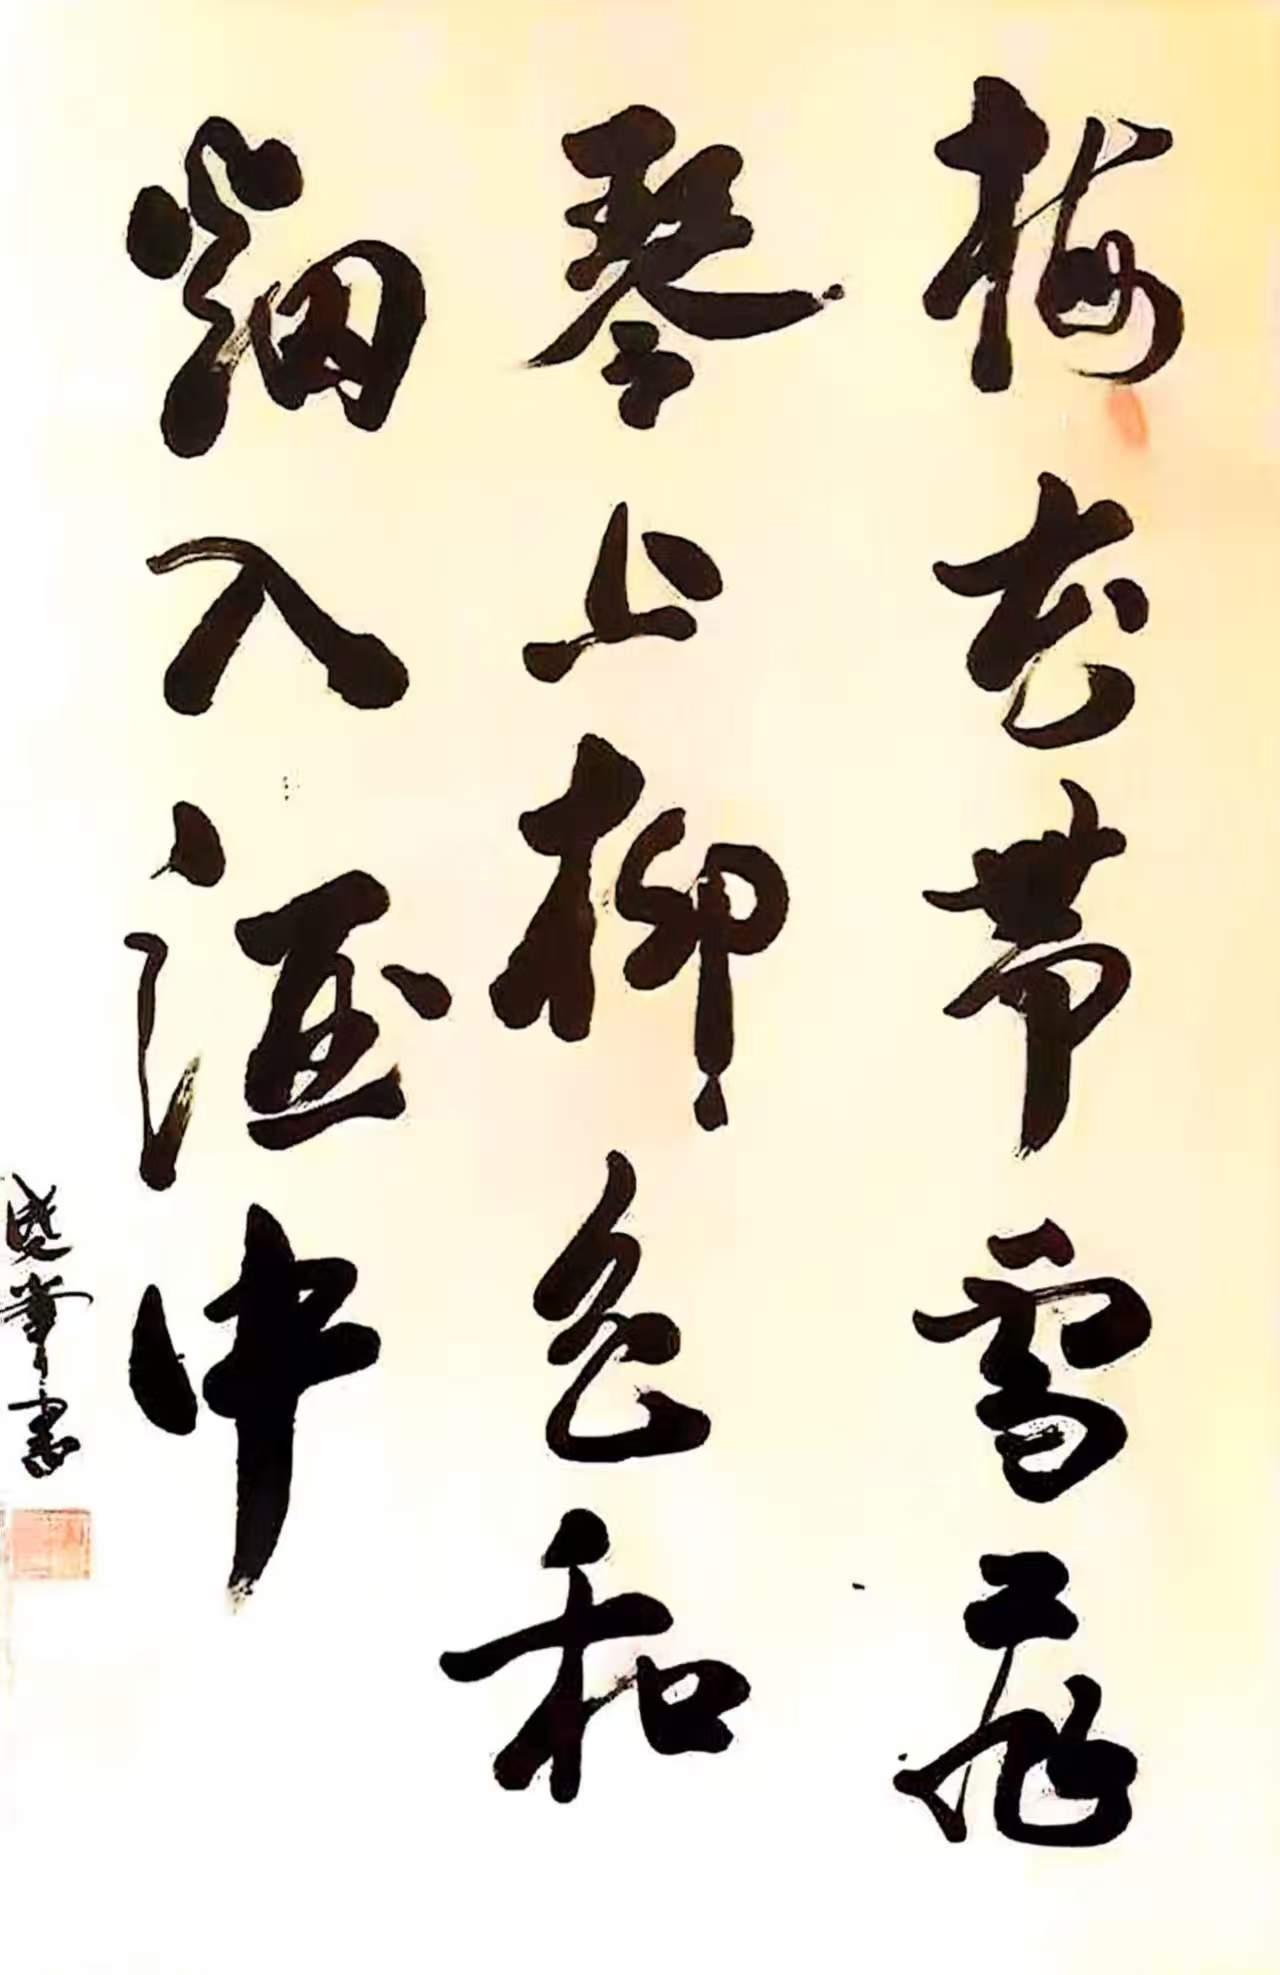 梅花帶雪飛
琴上柳色和
烟入酒中
書